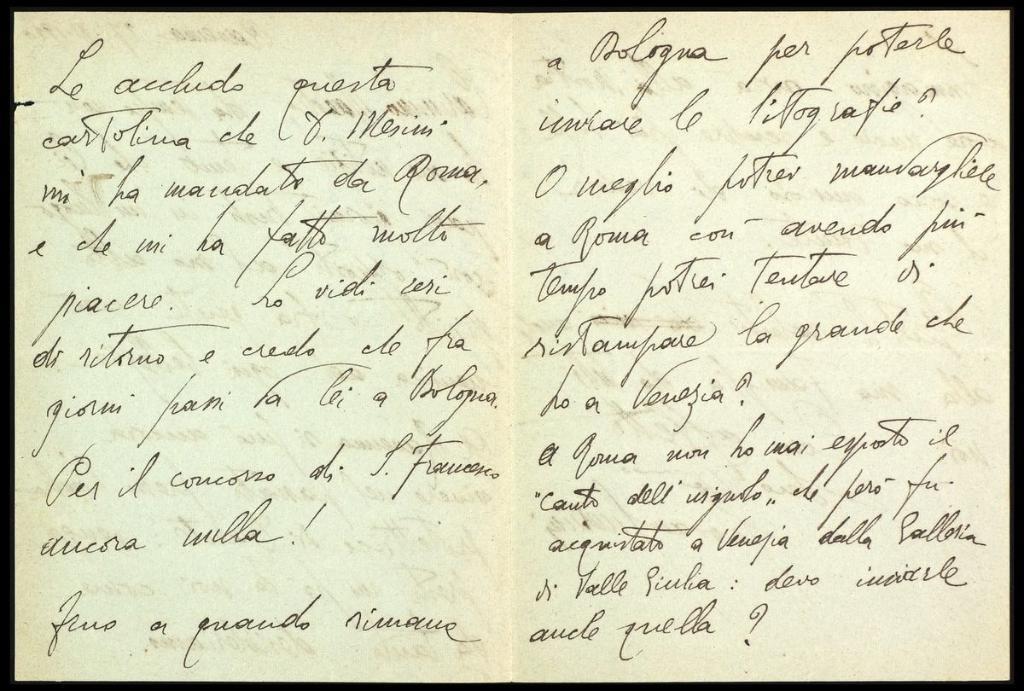 Le accludo questa
cartolina che D. Mesini
mi ha mandato da Roma,
e che mi ha fatto molto
piacere. Lo vidi ieri
di ritorno e credo che fra
giorni passi da lei a Bologna.
Per il concorso di S. Francesco
ancora nulla!
Fino a quando rimane
a Bologna per poterle
inviare le litografie?
O meglio potrei mandargliele
a Roma così avendo più
tempo potrei tentare di
ristampare la grande che
ho a Venezia?
A Roma non ho mai esposto il
"canto dell'usignolo„ che però fu
acquistato a Venezia dalla Galleria
di Valle Giulia: devo inviarle
anche quella?